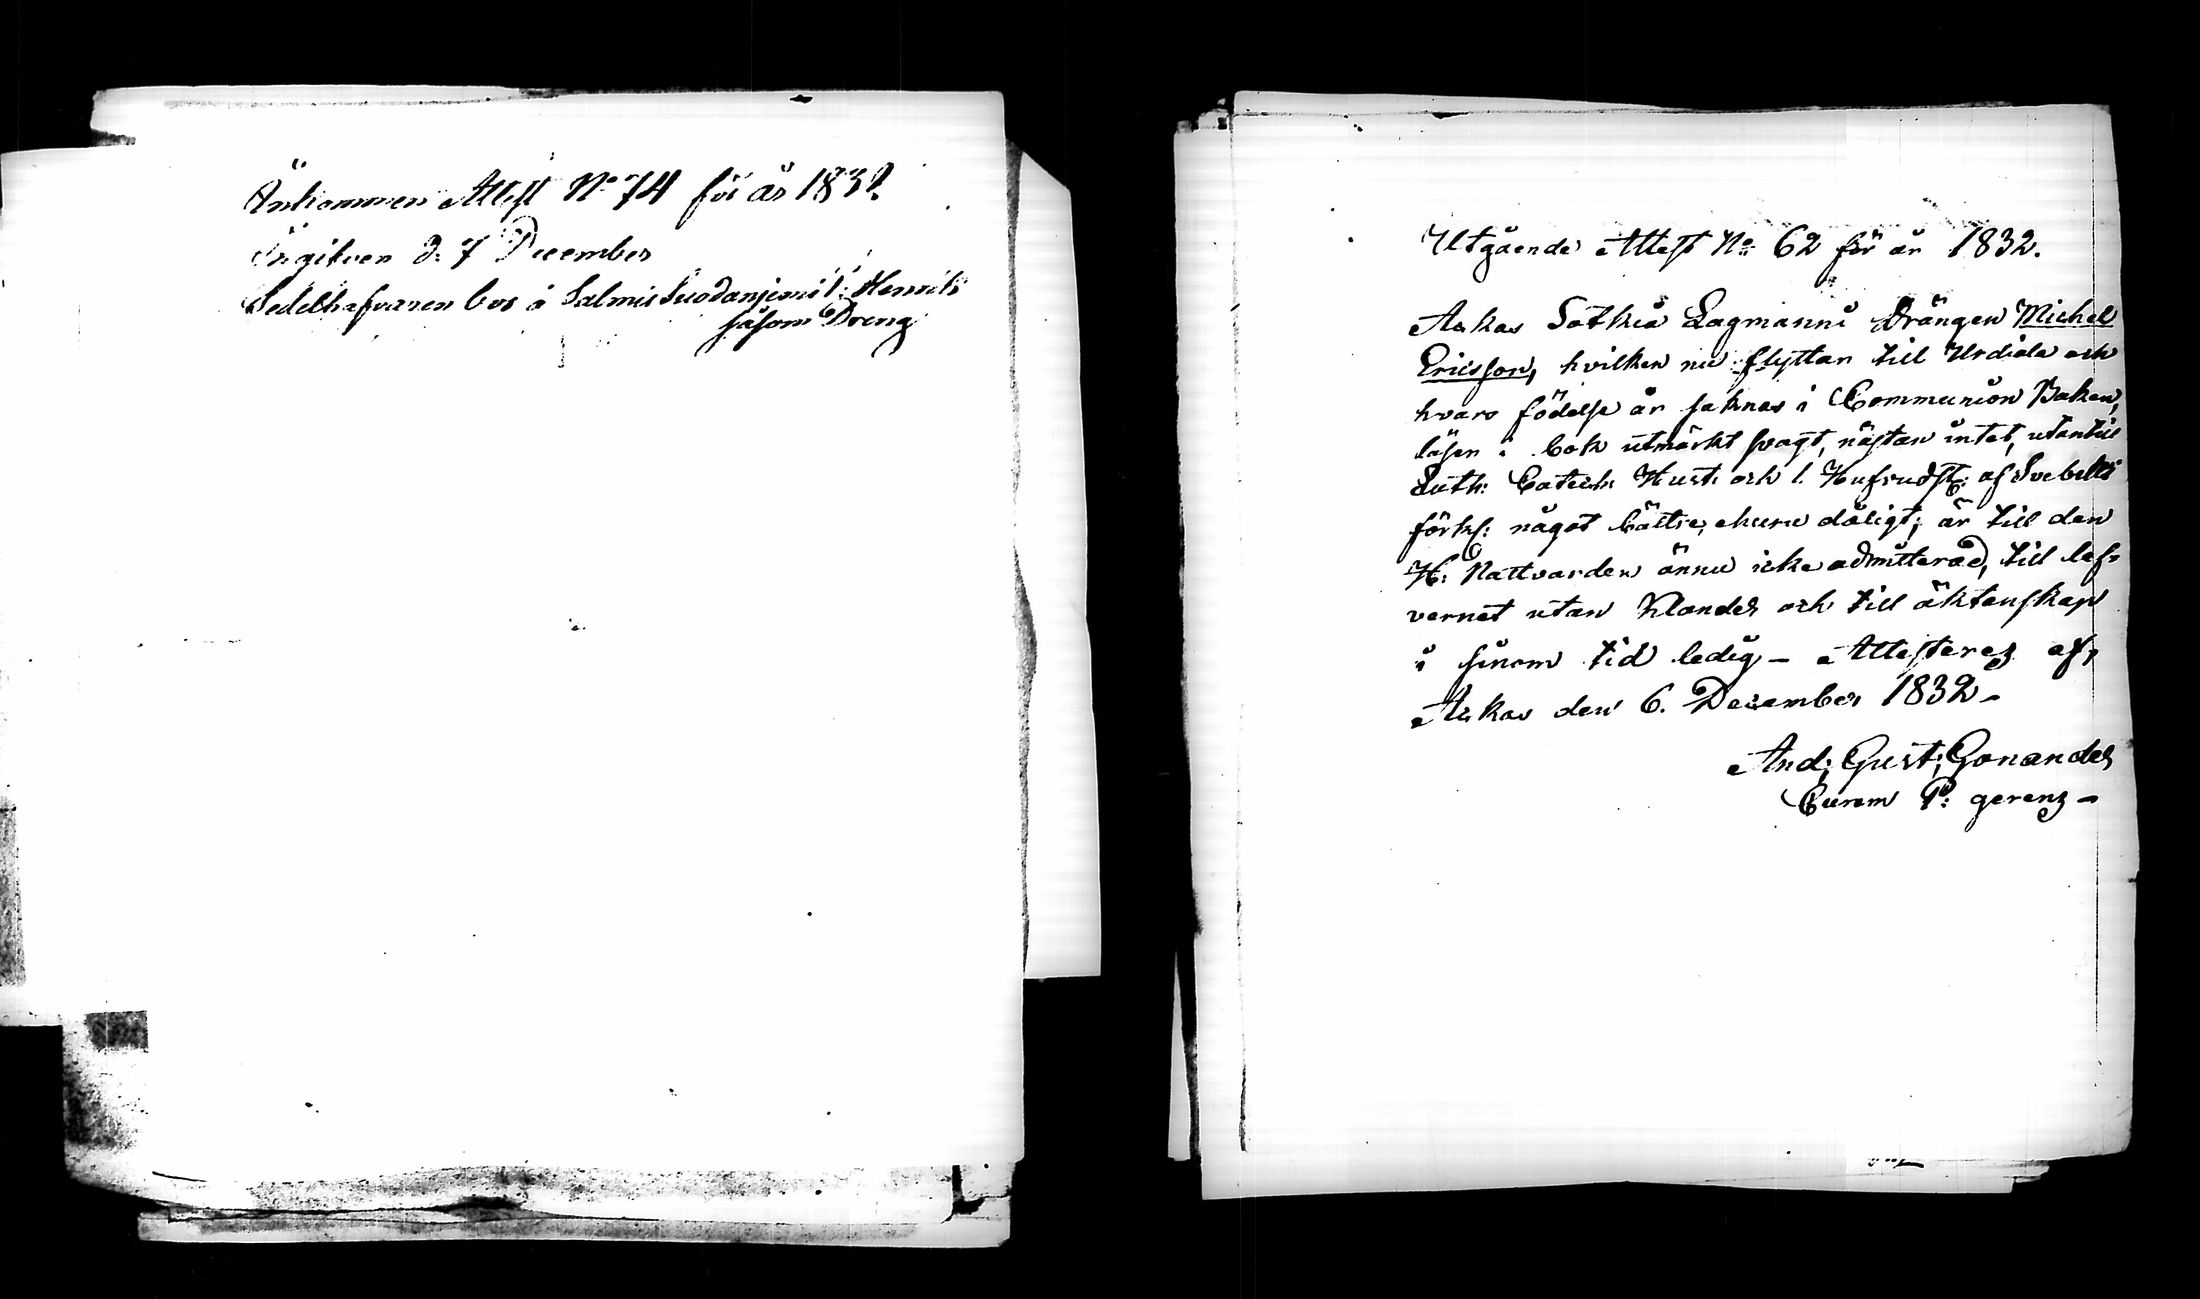 Ankommen Attest No 74 för år 1832
Ingifven d. 7 December
Sedelhafvaren bor å Salmis Suodanjemi Henrik
såsom Dreng
Utgående Attest No 62 för år 1832.
Ackas Sotkia Lagmanni Drängen Michel
Ericsson, hvilken nu flyttar till Urdiala och
hvars födelse år saknas i Communion Boken,
läser i bok utmärkt svagt, nästan intet, utantill
Luth: Catech: Hust: och 1. Hufvudst: af Svebelii
förkl: något bättre, ehuru dåligt; är till den
H: Nattvarden ännu icke admitterad, till lef-
vernet utan klander och till äktenskap
i sinom tid ledig – Attesteras af,
Ackas den 6. December 1832 –
And: Gust: Gonander
Curam P: gerens –